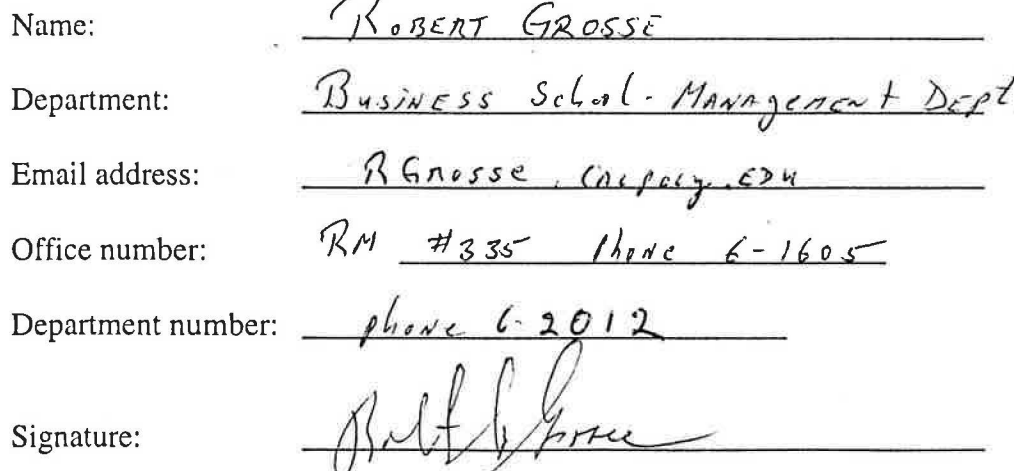 Name: ROBERT GROSSE
Department: Business School - Management Dept
Email address: RGrosse . calpoly . EDU
Office number: RM #335 Phone 6-1605
Department number: phone 6-2012
Signature: Robert Grosse